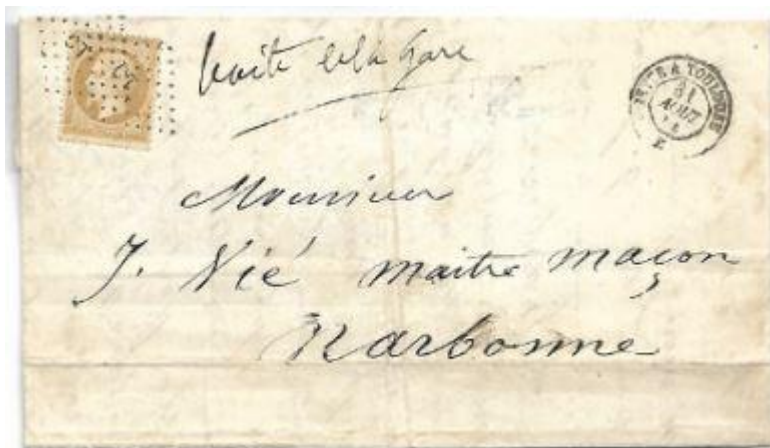 boite de la gare
TOULOUSE
31
AOUT
Monsieur
J. Vié maitre maçon
Narbonne